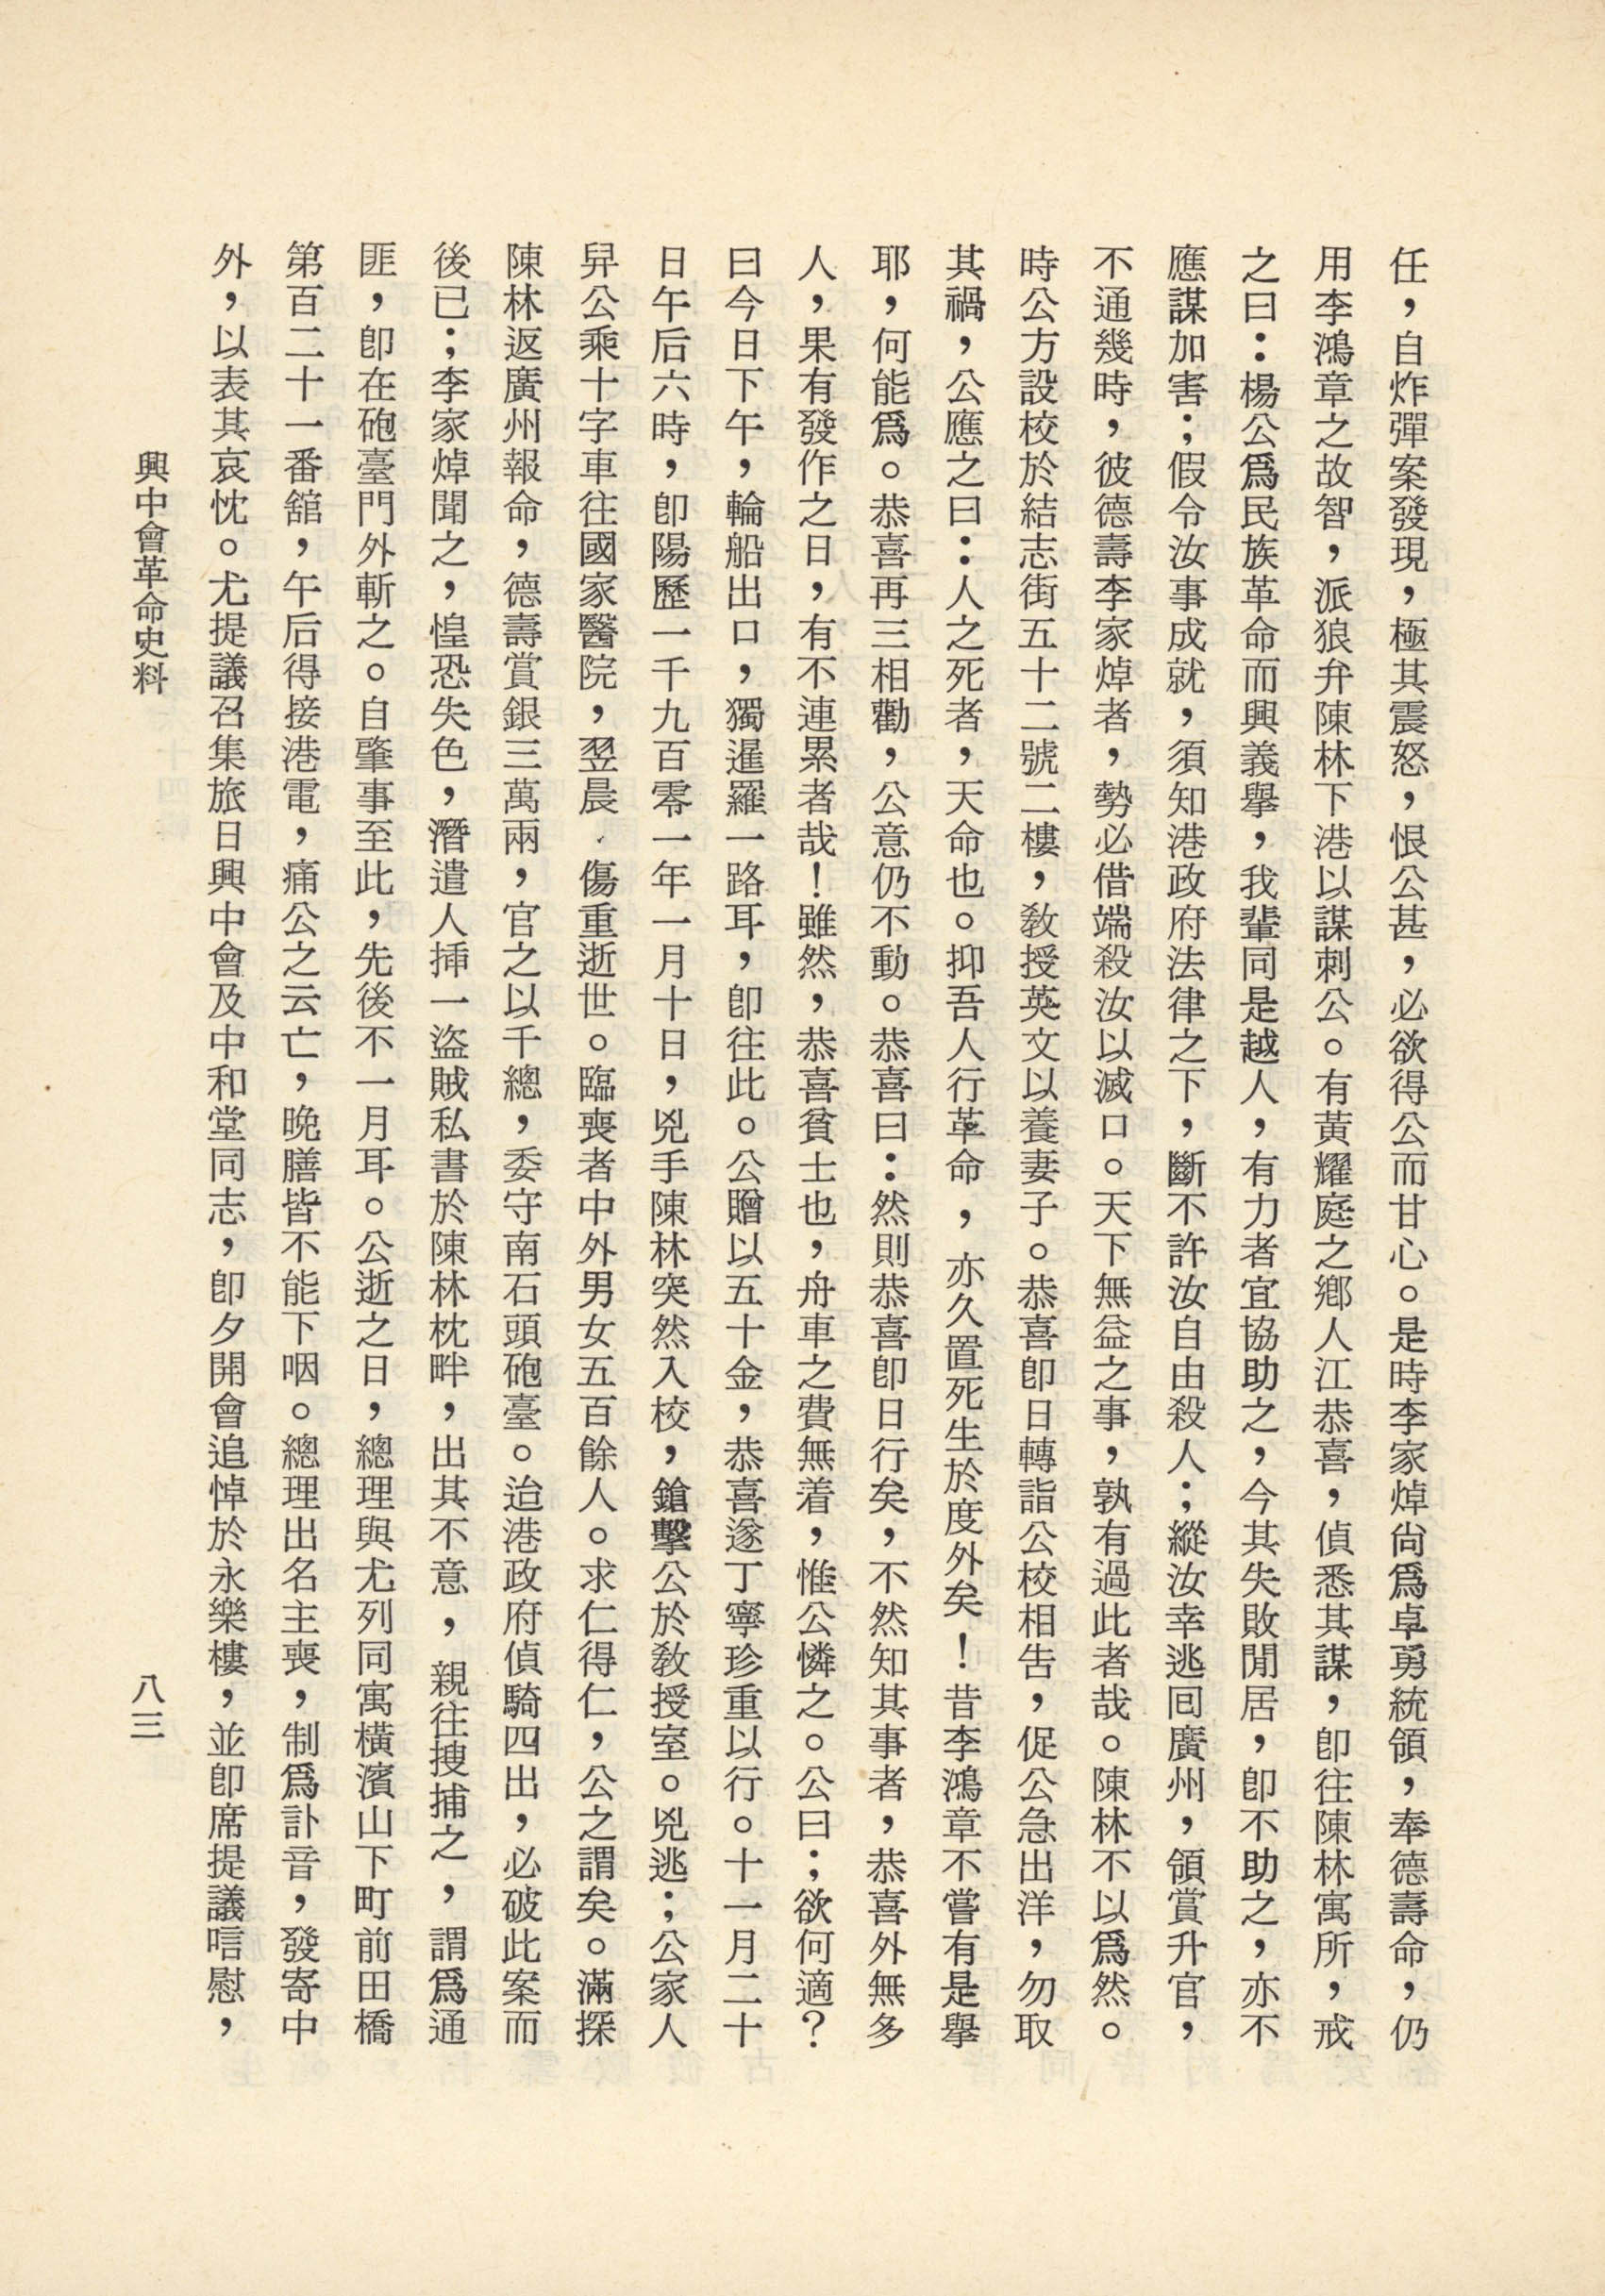 任，自炸彈案發現，極其震怒，恨公甚，必欲得公而甘心。是時李家焯尙爲卓勇統領，奉德壽命，仍
用李鴻章之故智，派狼弁陳林下港以謀刺公。有黃耀庭之鄕人江恭喜，偵悉其謀，卽往陳林寓所，戒
之曰：楊公爲民族革命而興義擧，我輩同是越人，有力者宜協助之，今其失敗閒居，卽不助之，亦不
應謀加害；假令汝事成就，須知港政府法律之下，斷不許汝自由殺人；縱汝幸逃囘廣州，領賞升官，
不通幾時，彼德壽李家焯者，勢必借端殺汝以滅口。天下無益之事，孰有過此者哉。陳林不以爲然。
時公方設校於結志街五十二號二樓，敎授英文以養妻子。恭喜卽日轉詣公校相吿，促公急出洋，勿取
其禍，公應之曰：人之死者，天命也。抑吾人行革命，亦久置死生於度外矣！昔李鴻章不嘗有是擧
耶，何能爲。恭喜再三相勸，公意仍不動。恭喜曰：然則恭喜卽日行矣，不然知其事者，恭喜外無多
人，果有發作之日，有不連累者哉！雖然，恭喜貧士也，舟車之費無着，惟公憐之。公曰；欲何適？
曰今日下午，輪船出口，獨暹羅一路耳，卽往此。公贈以五十金，恭喜遂丁寧珍重以行。十一月二十
日午后六時，卽陽歷一千九百零一年一月十日，兇手陳林突然入校，鎗擊公於敎授室。兇逃；公家人
舁公乘十字車往國家醫院，翌晨，傷重逝世。臨喪者中外男女五百餘人。求仁得仁，公之謂矣。滿探
陳林返廣州報命，德壽賞銀三萬兩，官之以千總，委守南石頭砲臺。迨港政府偵騎四出，必破此案而
後已；李家焯聞之，惶恐失色，潛遣人揷一盜賊私書於陳林枕畔，出其不意，親往搜捕之，謂爲通
匪，卽在砲臺門外斬之。自肇事至此，先後不一月耳。公逝之日，總理與尤列同寓橫濱山下町前田橋
第百二十一番舘，午后得接港電，痛公之云亡，晚膳皆不能下咽。總理出名主喪，制爲訃音，發寄中
外，以表其哀忱。尤提議召集旅日興中會及中和堂同志，卽夕開會追悼於永樂樓，並卽席提議唁慰，
興中會革命史料
八三